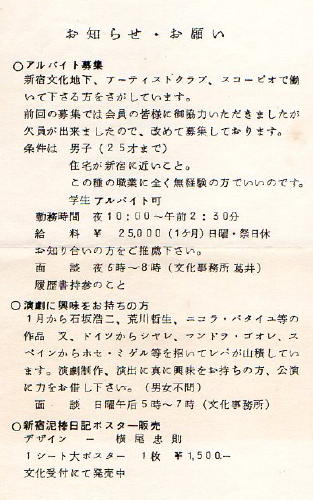 お知らせ・お願い
○アルバイト募集
新宿文化地下、アーティストクラブ、スコーピオで働
いて下さる方をさがしています。
前回の募集では会員の皆様に御協力いただきましたが
欠員が出来ましたので、改めて募集しております。
条件は 男子（25才まで）
住宅が新宿に近いこと。
この種の職業に全く無経験の方でいいのです。
学生アルバイト可
勤務時間 夜10:00～午前2:30分
給 料 ￥ 25,000（1ヶ月）日曜・祭日休
お知り合いの方をご推薦下さい。
面 談 夜6時～8時（文化事務所 葛井）
履歴書持参のこと
○演劇に興味をお持ちの方
1月から石坂浩二、荒川哲生、ニコラ・バタイユ等の
作品 又、ドイツからシヤレ、フンドラ・ゴオレ、ス
ペインからホセ・ミゲル等を招いてレパが山積してい
ます。演劇制作、演出に真に興味をお持ちの方、公演
に力をお借し下さい。（男女不問）
面 談 日曜午后5時～7時（文化事務所）
○新宿泥棒日記ポスター販売
デザイン ー 横尾忠則
1シート大ポスター 1枚 ￥1,500ー
文化受付にて発売中